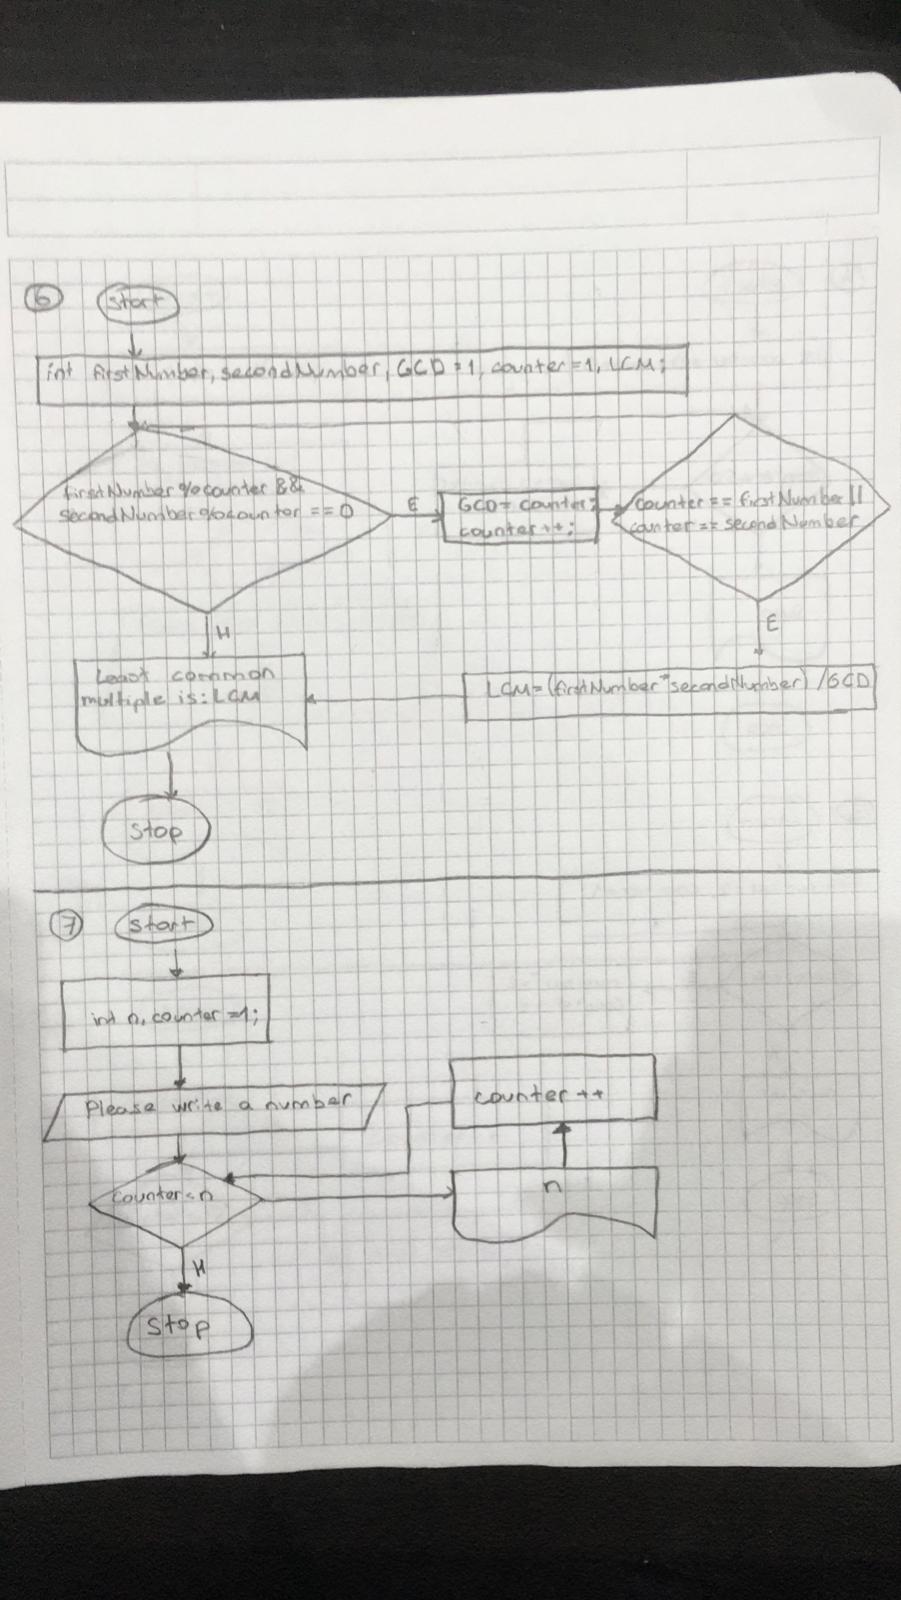 6
Start
int firstNumber, secondNumber, GCD=1, counter=1, LCM;
firstNumber%counter &&
secondNumber%counter ==0
E
GCD= counter;
counter++;
counter == firstNumber ||
counter == secondNumber
H
E
Least common
multiple is: LCM
LCM=(firstNumber*secondNumber) /GCD
Stop
7
Start
int n, counter =1;
Please write a number
counter ++
counter<n
n
H
Stop